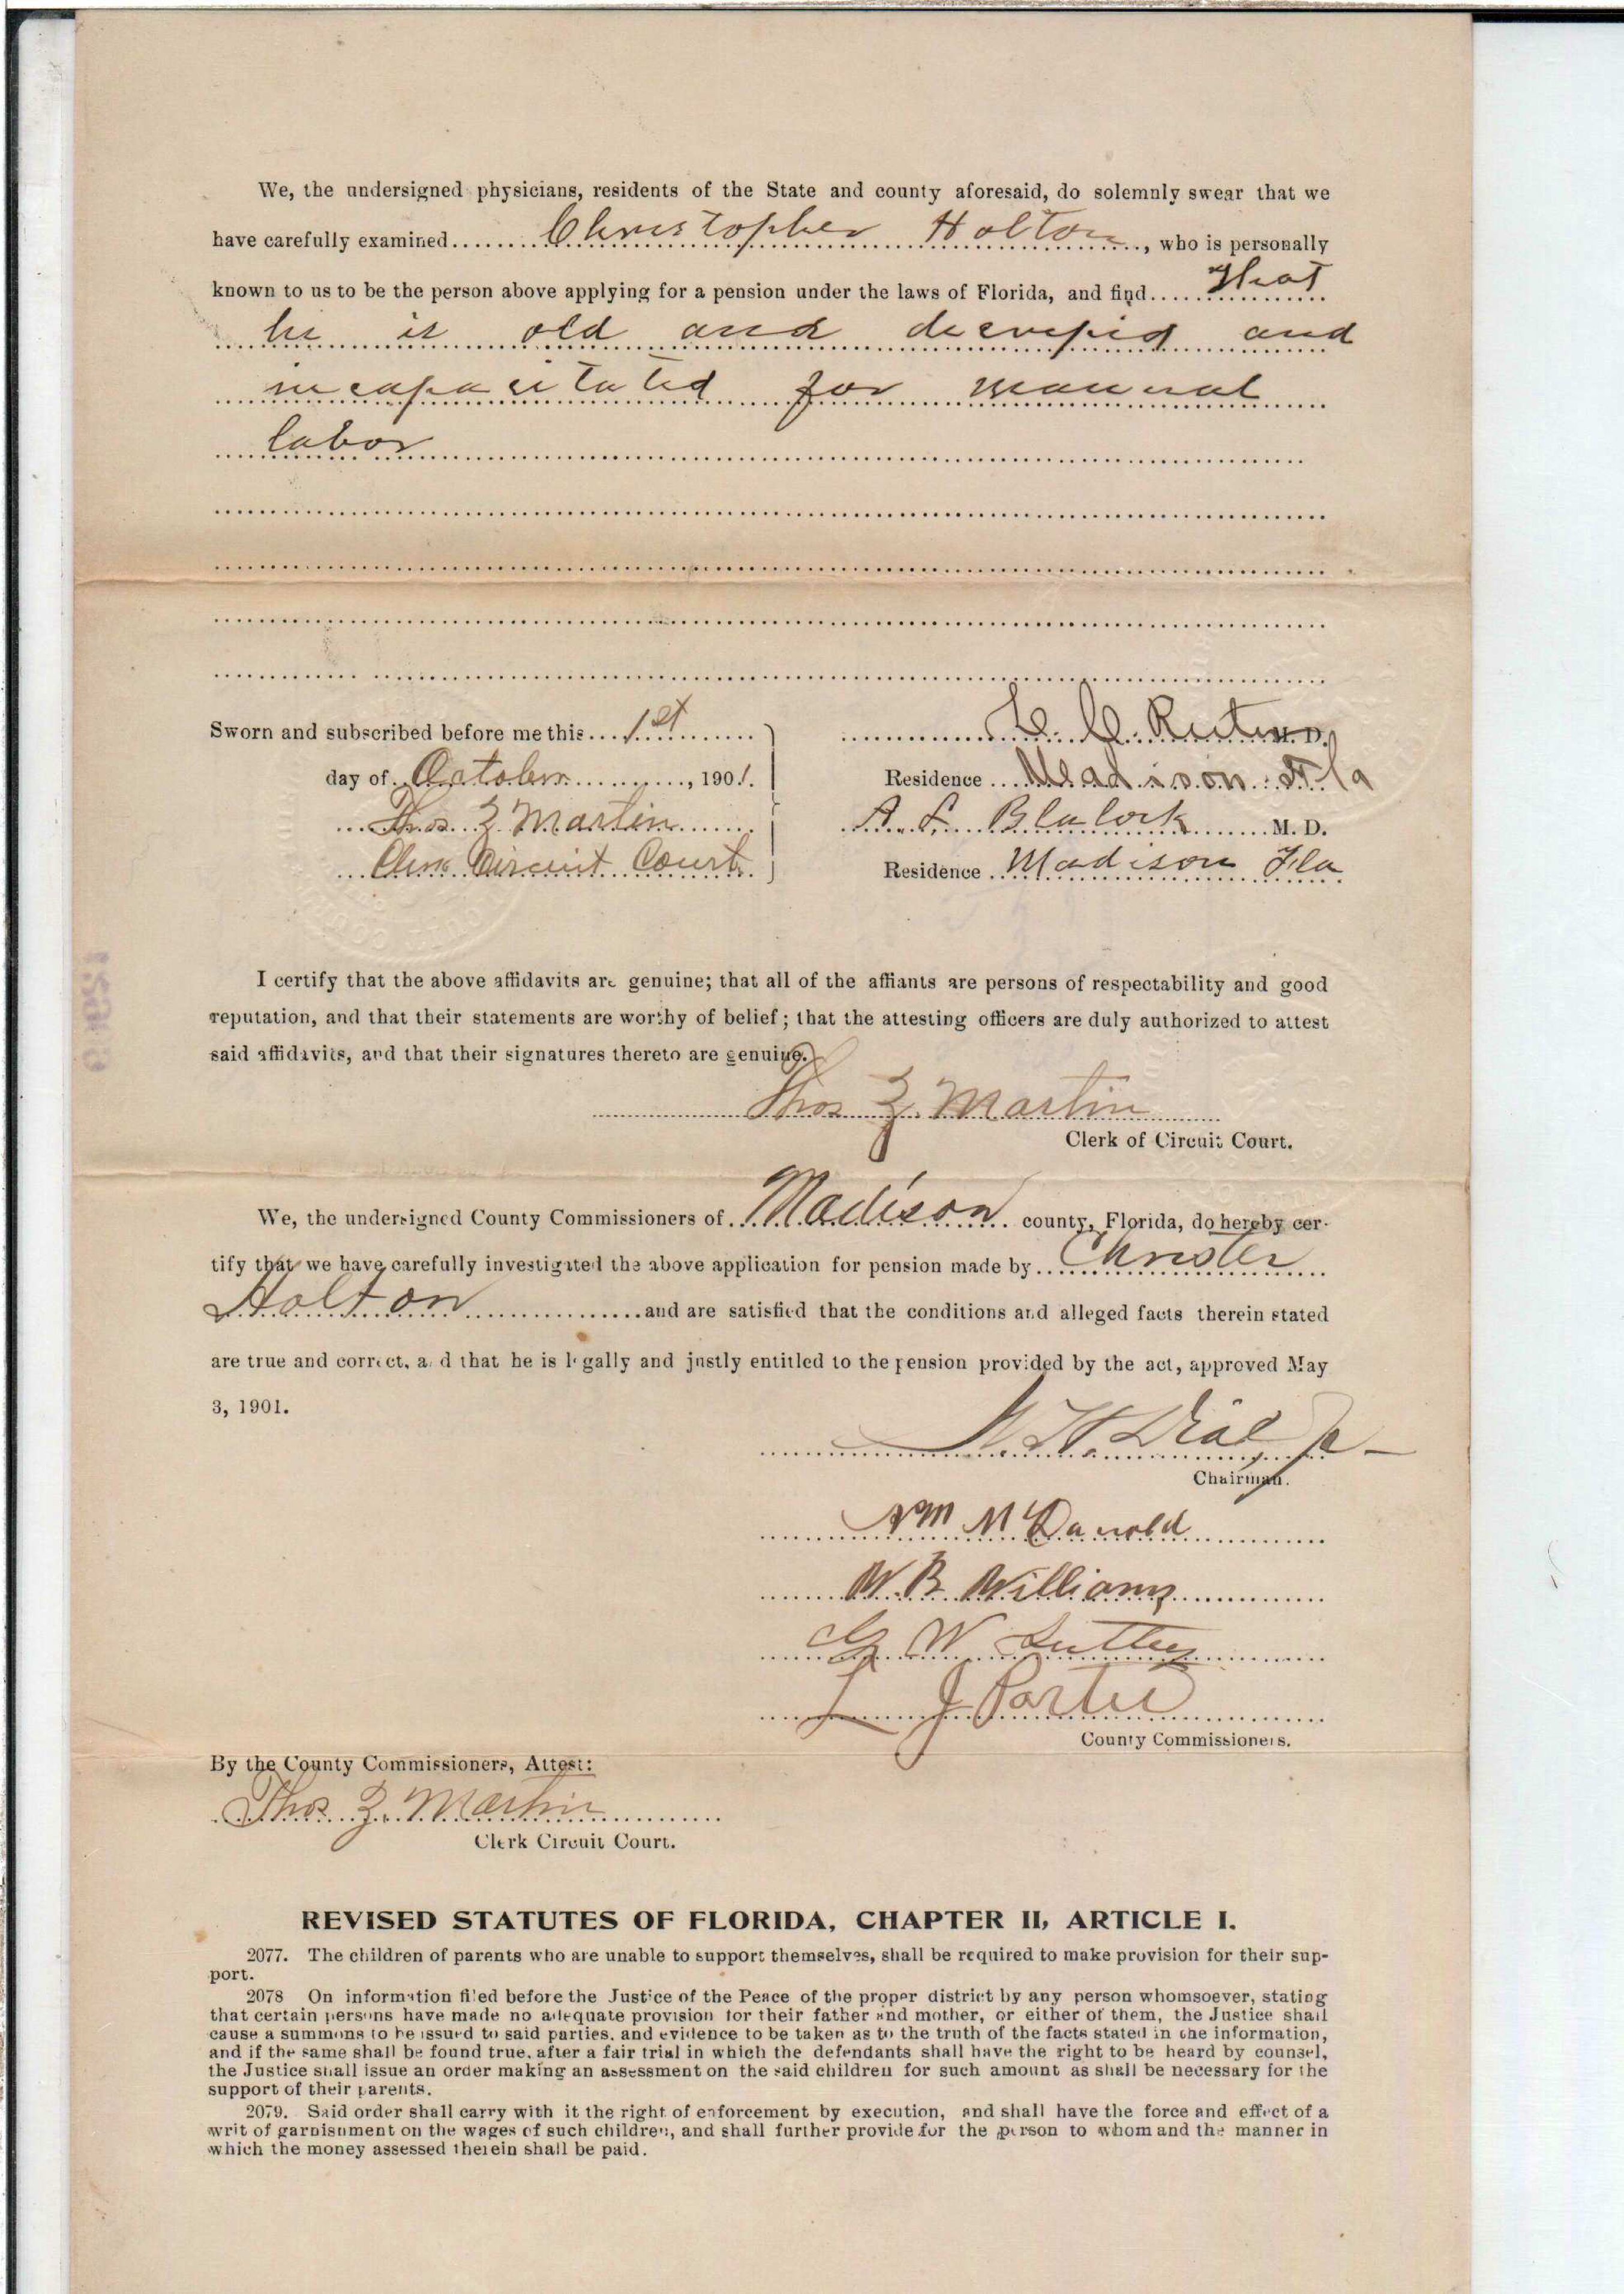 We, the undersigned physicians, residents of the State and county aforesaid, do solemnly swear that we
have carefully examined Christopher Holton, who is personally
known to us to be the person above applying for a pension under the laws of Florida, and find That
he is old and decrepid and
incapacitated for manual
labor
Sworn and subscribed before me this 1st
M. D.
day of October, 1901.
Residence Madison Fla
Thos Z Martin
A. L. Blalock M. D.
Clerk Circuit Court
Residence Madison Fla
I certify that the above affidavits are genuine; that all of the affiants are persons of respectability and good
reputation, and that their statements are worthy of belief; that the attesting officers are duly authorized to attest
said affidavits, and that their signatures thereto are genuine.
Thos Z. Martin
Clerk of Circuit Court.
We, the undersigned County Commissioners of Madison county, Florida, do hereby cer-
tify that we have carefully investigated the above application for pension made by Christer
Holton and are satisfied that the conditions and alleged facts therein stated
are true and correct, and that he is legally and justly entitled to the pension provided by the act, approved May
3, 1901.
W H Dial Jr
Chairman.
McDanold
W. B. Williams
G W
L J Porter
County Commissioners.
By the County Commissioners, Attest:
Thos Z. Martin
Clerk Circuit Court.
REVISED STATUTES OF FLORIDA, CHAPTER II, ARTICLE I.
2077. The children of parents who are unable to support themselves, shall be required to make provision for their sup-
port.
2078 On information filed before the Justice of the Peace of the proper district by any person whomsoever, stating
that certain persons have made no adequate provision for their father and mother, or either of them, the Justice shall
cause a summons to be issued to said parties, and evidence to be taken as to the truth of the facts stated in the information,
and if the same shall be found true, after a fair trial in which the defendants shall have the right to be heard by counsel,
the Justice shall issue an order making an assessment on the said children for such amount as shall be necessary for the
support of their parents.
2079. Said order shall carry with it the right of enforcement by execution, and shall have the force and effect of a
writ of garnishment on the wages of such children, and shall further provide for the person to whom and the manner in
which the money assessed therein shall be paid.